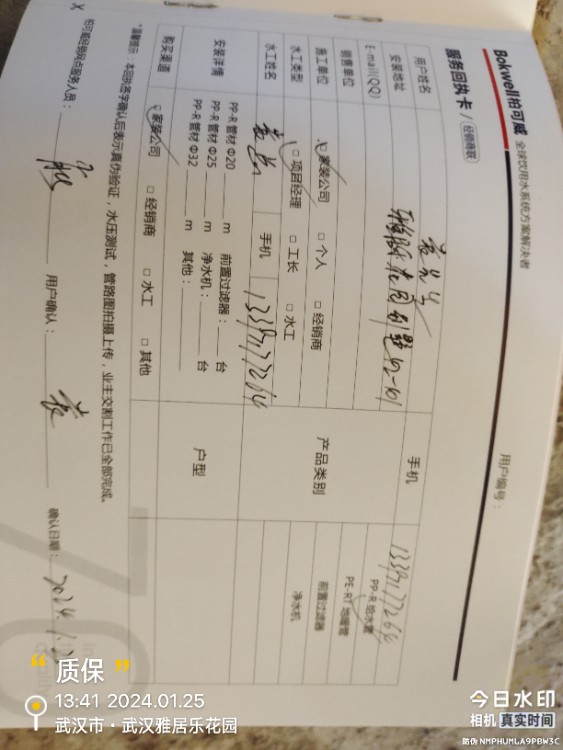 Bokwell柏可威 全球饮用水系统方案解决者
服务回执卡 / 经销商联
用户编号：
用户姓名
手机 13391177264
安装地址 雅居乐花园别墅42-101
E-mail(QQ)
销售单位
产品类别
PP-R 给水管
PE-RT 地暖管
前置过滤器
净水机
施工单位 家装公司 □ 个人 □ 经销商
水工类型 □ 项目经理 □ 工长 □ 水工
水工姓名 手机 13391177264
安装详情
PP-R 管材 Φ20 m 前置过滤器： 台
PP-R 管材 Φ25 m 净水机： 台
PP-R 管材 Φ32 m 其他：
户型
购买渠道 家装公司 □ 经销商 □ 水工 □ 其他
*温馨提示：本回执签字确认后表示真伪验证，水压测试，管路图拍摄上传，业主交割工作已全部完成。
柏可威经销网点服务人员： 用户确认： 确认日期：2024.1.2
“质保”
13:41 2024.01.25
武汉市·武汉雅居乐花园
今日水印
相机 真实时间
防伪 NMPHUMLA9PBW3C